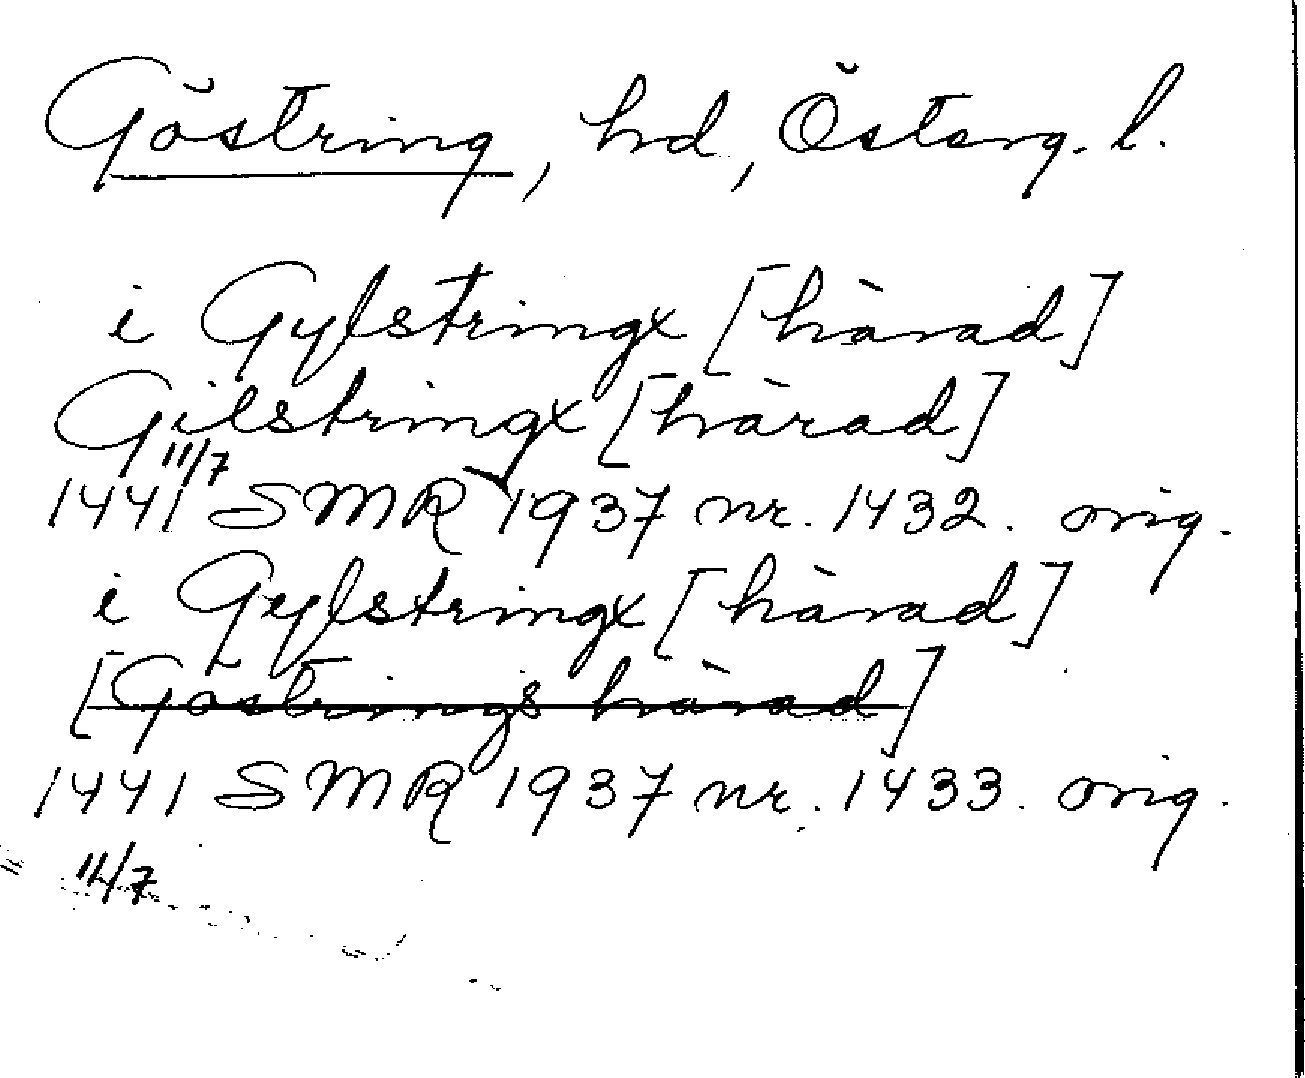 Göstring, hd, Österg. l.
i Gylstringx [härad]
Gilstringx [härad]
1441 11/7 SMR 1937 nr. 1432. orig.
i Gylstringx [härad]
[Göstrings härad]
1441 SMR 1937 nr. 1433. orig.
11/7